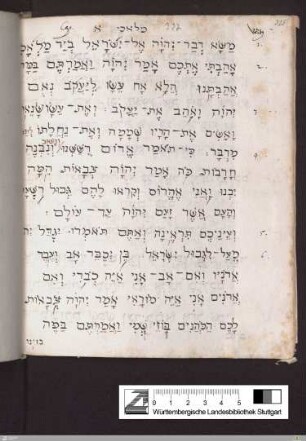 מלאכי א
מַשָּׂא דְבַר־יְהוָֹה אֶל־יִשְׂרָאֵל בְּיַד מַלְאָכִי
1.
אָהַבְתִּי אֶתְכֶם אָמַר יְהוָֹה וַאֲמַרְתֶּם בַּמָּה
2.
אֲהַבְתָּנוּ הֲלֹא אָח עֵשָׂו לְיַעֲקֹב נְאֻם
יְהוָֹה וָאֹהַב אֶת־יַעֲקֹב: וְאֶת־עֵשָׂו שָׂנֵאתִי
וָאָשִׂים אֶת־הָרָיו שְׁמָמָה וְאֶת־נַחֲלָתוֹ
מִדְבָּר: כִּי־תֹאמַר אֱדוֹם רֻשַּׁשְׁנוּ וְנִבְנֶה
חֳרָבוֹת כֹּה אָמַר יְהוָֹה צְבָאוֹת הֵמָּה
יִבְנוּ וַאֲנִי אֶהֱרוֹס וְקָרְאוּ לָהֶם גְּבוּל רִשְׁעָה
וְהָעָם אֲשֶׁר זָעַם יְהוָֹה עַד־עוֹלָם:
וְעֵינֵיכֶם תִּרְאֶינָה וְאַתֶּם תֹּאמְרוּ יִגְדַּל יְהוָֹה
5.
מֵעַל לִגְבוּל יִשְׂרָאֵל: בֵּן יְכַבֵּד אָב וְעֶבֶד
6.
אֲדֹנָיו וְאִם־אָב־אָנִי אַיֵּה כְבוֹדִי וְאִם
אֲדוֹנִים אָנִי אַיֵּה מוֹרָאִי אָמַר יְהוָֹה צְבָאוֹת
לָכֶם הַכֹּהֲנִים בּוֹזֵי שְׁמִי וַאֲמַרְתֶּם בַּמֶּה
בזינו
0 1 2 3 4 5
Württembergische Landesbibliothek Stuttgart